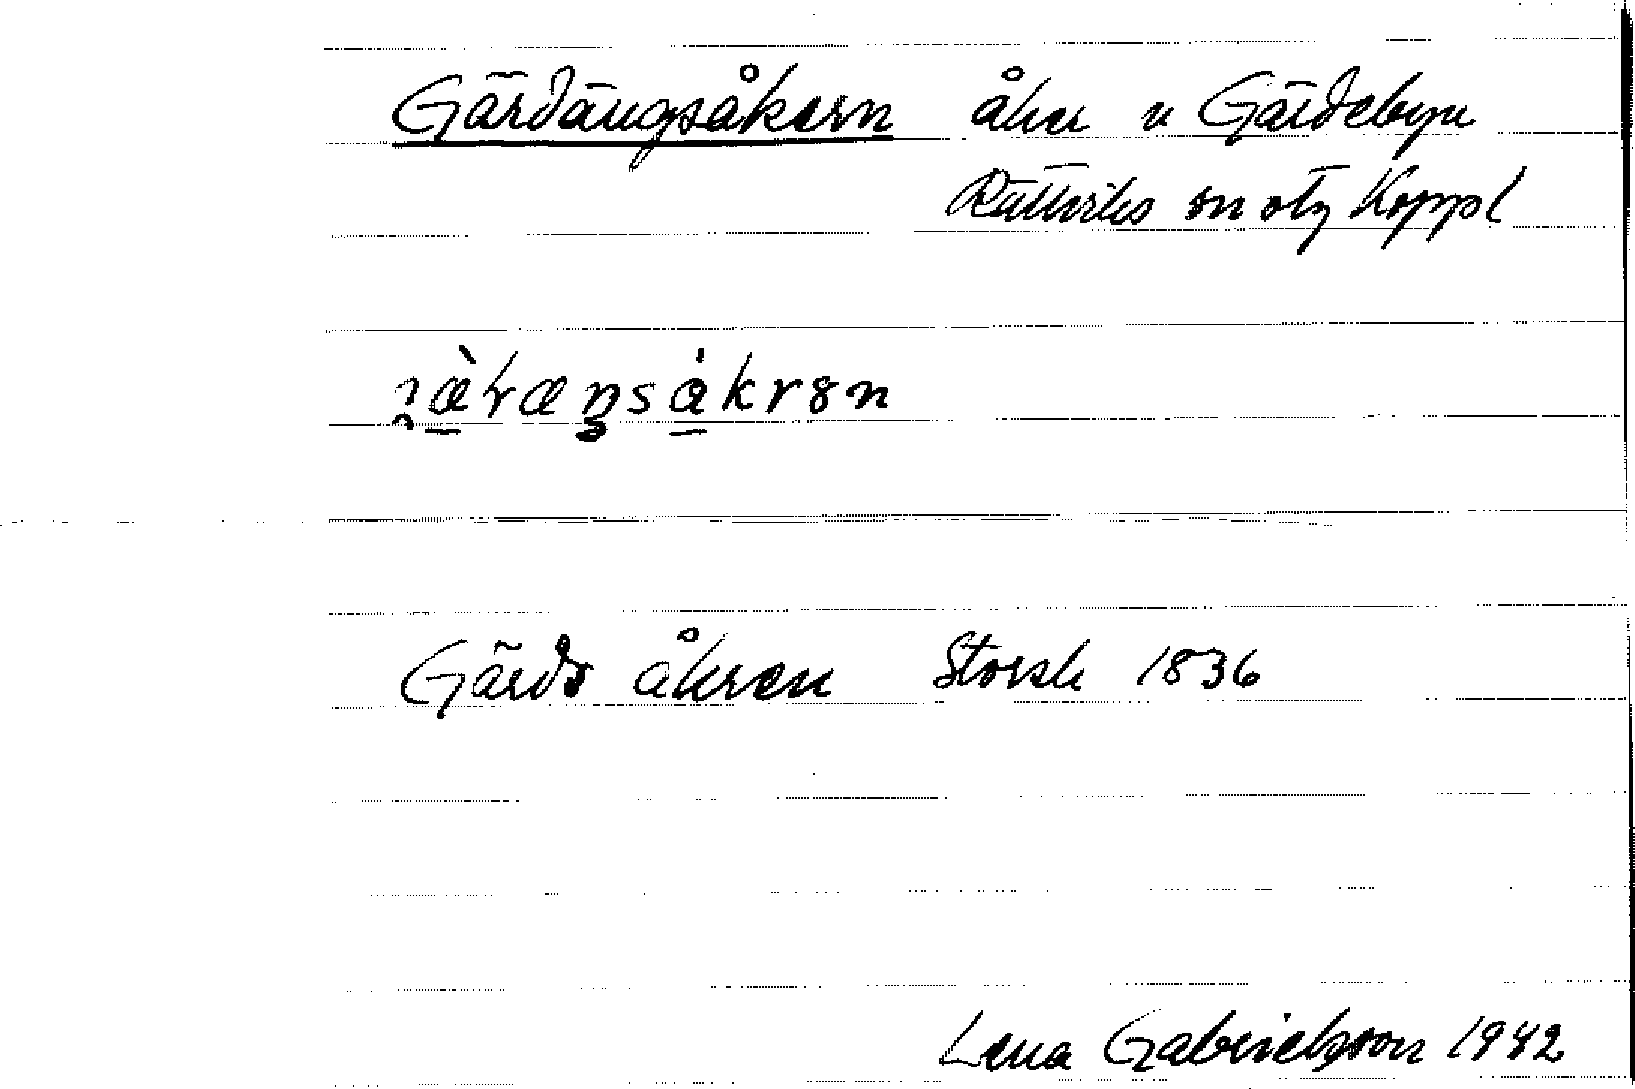 Gärdängsåkern åker u Gärdebyn
Rättviks sn otg Koppl
Gärds åkren Storsk 1836
Lena Gabrielsson 1942